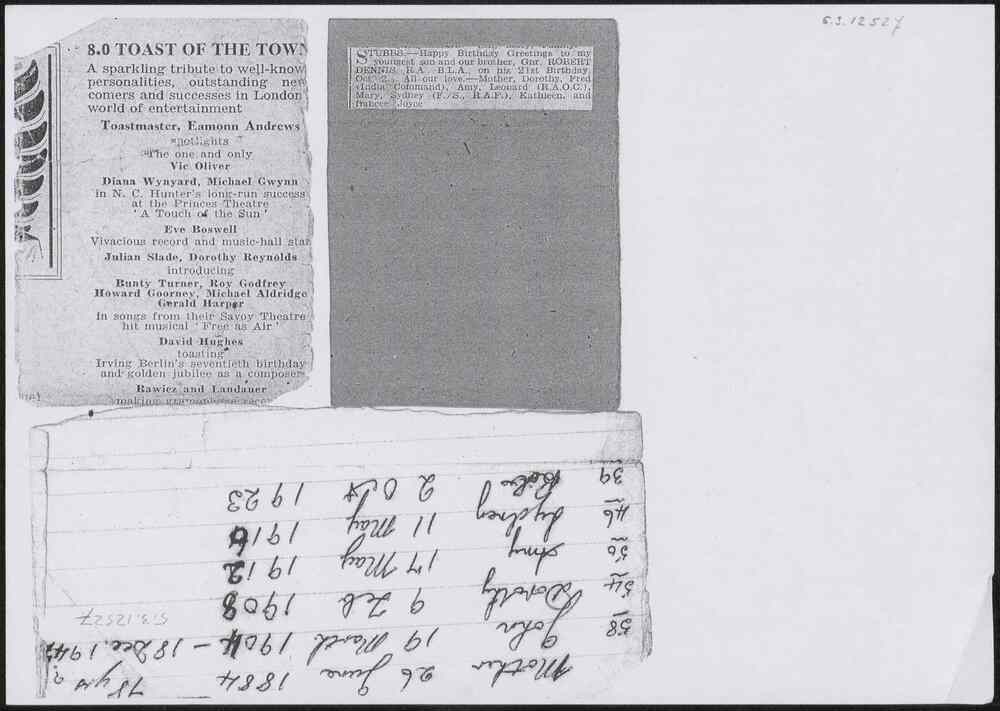 S.3.12527
8.0 TOAST OF THE TOWN
A sparkling tribute to well-know
personalities, outstanding new
comers and successes in London
world of entertainment
Toastmaster, Eamonn Andrews
spotlights
The one and only
Vic Oliver
Diana Wynyard, Michael Gwynn
in N. C. Hunter's long-run success
at the Princes Theatre
' A Touch of the Sun '
Eve Boswell
Vivacious record and music-hall star
Julian Slade, Dorothy Reynolds
introducing
Bunty Turner, Roy Godfrey
Howard Goorney, Michael Aldridge
Gerald Harper
in songs from their Savoy Theatre
hit musical ' Free as Air '
David Hughes
toasting
Irving Berlin's seventieth birthday
and golden jubilee as a composer
Rawicz and Landauer
making gramophone
STUBBS.—Happy Birthday Greetings to my
youngest son and our brother, Gnr. ROBERT
DENNIS, R.A., B.L.A., on his 21st Birthday,
Oct. 2. All our love.—Mother, Dorothy, Fred
(India Command), Amy, Leonard (R.A.O.C.),
Mary, Sydney (F./S., R.A.F.), Kathleen, and
Joyce
Mother 26 June 1884 78 yrs ?
58 John 19 March 1904 - 18 Dec. 194
54 Dorothy 9 Feb 1908
S.3.12527
50 Amy 17 May 1912
46 Sydney 11 May 1916
39 2 Oct 1923